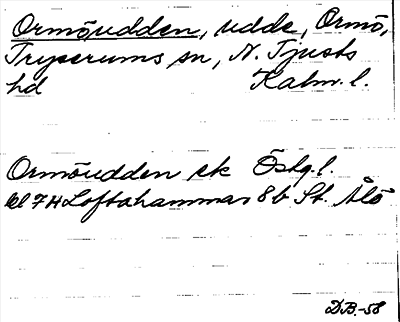 Ormöudden, udde, Ormö,
Tryserums sn, N. Tjusts
hd Kalm. l.
Ormöudden ek Östg. l.
bl 7H Loftahammar 8b St. Ålö
D.B.-58